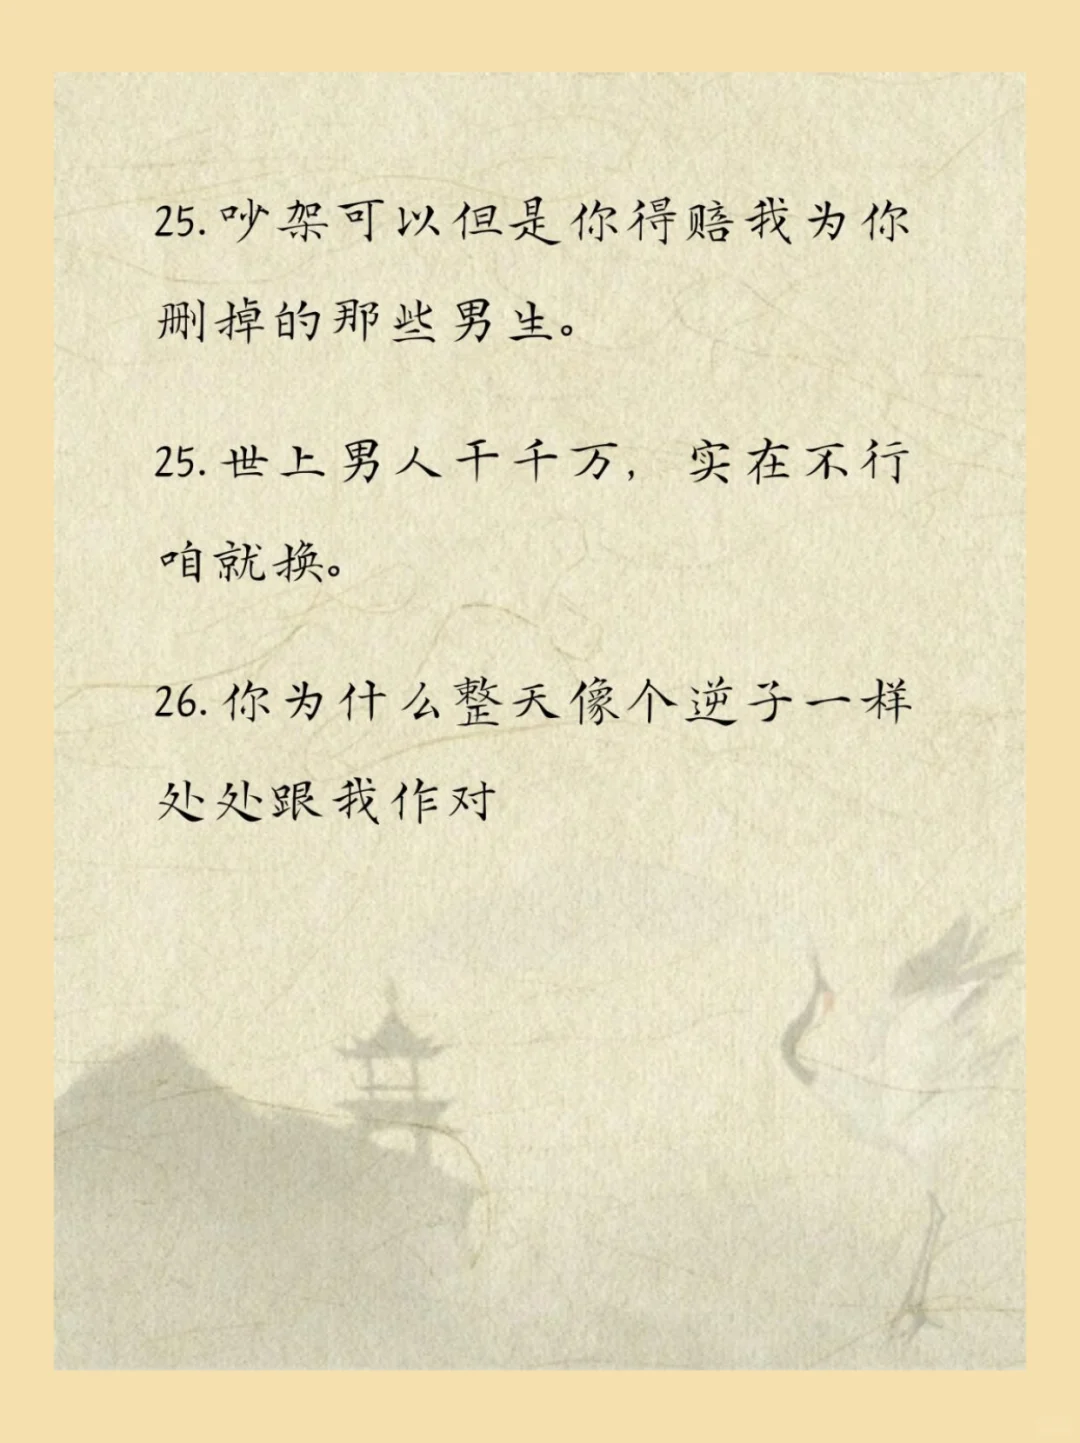 25.吵架可以但是你得赔我为你
删掉的那些男生。
25.世上男人千千万，实在不行
咱就换。
26.你为什么整天像个逆子一样
处处跟我作对